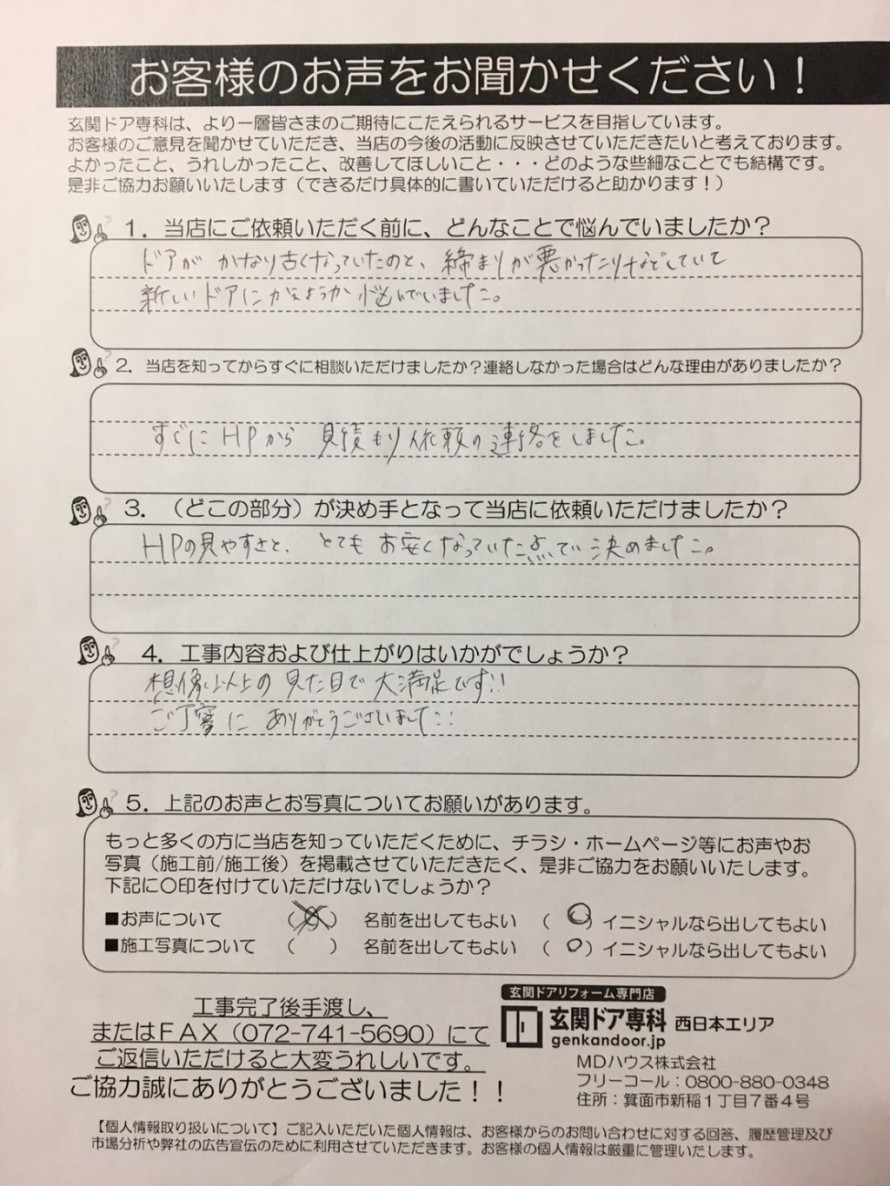 お客様のお声をお聞かせください！
玄関ドア専科は、より一層皆さまのご期待にこたえられるサービスを目指しています。
お客様のご意見を聞かせていただき、当店の今後の活動に反映させていただきたいと考えております。
よかったこと、うれしかったこと、改善してほしいこと・・・どのような些細なことでも結構です。
是非ご協力お願いいたします（できるだけ具体的に書いていただけると助かります！）
1．当店にご依頼いただく前に、どんなことで悩んでいましたか？
ドアが かなり古くなっていたのと、締まりが悪かったりなどしていて
新しいドアにかえようか悩んでいました。
2．当店を知ってからすぐに相談いただけましたか？連絡しなかった場合はどんな理由がありましたか？
すぐにHPから 見積もり依頼の連絡をしました。
3．（どこの部分）が決め手となって当店に依頼いただけましたか？
HPの見やすさと、とても お安くなっていた点で決めました。
4．工事内容および仕上がりはいかがでしょうか？
想像以上の見た目で大満足です!!
ご丁寧に ありがとうございました!!
5．上記のお声とお写真についてお願いがあります。
もっと多くの方に当店を知っていただくために、チラシ・ホームページ等にお声やお
写真（施工前/施工後）を掲載させていただきたく、是非ご協力をお願いいたします。
下記に〇印を付けていただけないでしょうか？
■お声について （○） 名前を出してもよい （○）イニシャルなら出してもよい
■施工写真について （ ） 名前を出してもよい （○）イニシャルなら出してもよい
工事完了後手渡し、
またはFAX（072-741-5690）にて
ご返信いただけると大変うれしいです。
ご協力誠にありがとうございました！！
玄関ドアリフォーム専門店
玄関ドア専科 西日本エリア
genkandoor.jp
MDハウス株式会社
フリーコール：0800-880-0348
住所：箕面市新稲1丁目7番4号
【個人情報取り扱いについて】ご記入いただいた個人情報は、お客様からのお問い合わせに対する回答、履歴管理及び
市場分析や弊社の広告宣伝のために利用させていただきます。お客様の個人情報は厳重に管理いたします。